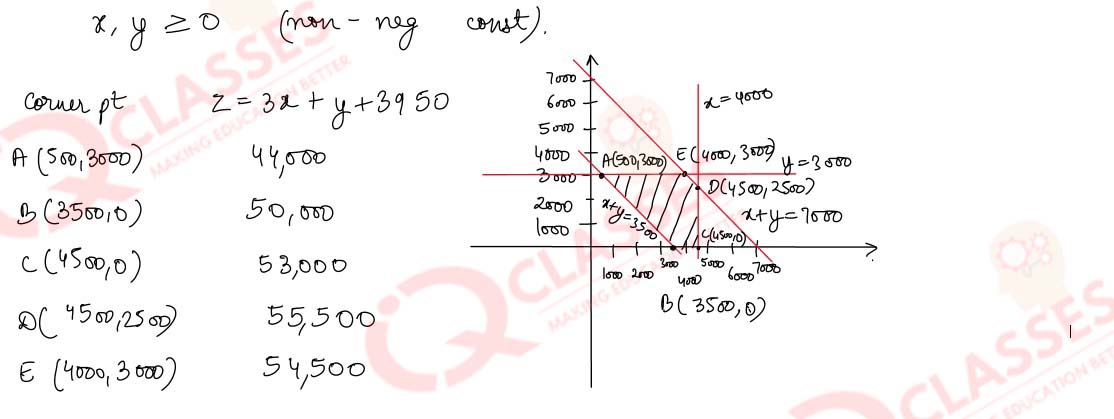 x, y ≥ 0 (non-neg const).
corner pt Z = 3x + y + 3950
A (500,3000) 44,000
B (3500,0) 50,000
C (4500,0) 53,000
D( 4500,2500) 55,500
E (4000,3000) 54,500
7000
6000
5000
4000
3000
2000
1000
x = 4000
A(500,3000)
E(4000, 3000)
y = 3000
D(4500,2500)
x+y = 3500
x+y = 7000
C(4500,0)
1000 2000 3000 4000 5000 6000 7000
B( 3500,0)
IQ CLASSES
MAKING EDUCATION BETTER
IQ CLASSES
MAKING EDUCATION BETTER
CLASSES
IQ CLASSES
EDUCATION BETTER